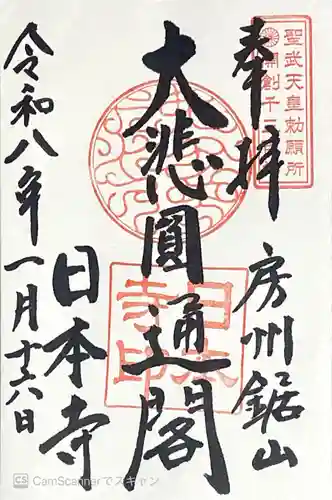 奉拝
聖武天皇勅願所
開創千三
房州鋸山
大悲圓通閣
日本寺印
日本寺
令和八年一月十六日
CS CamScannerでスキャン